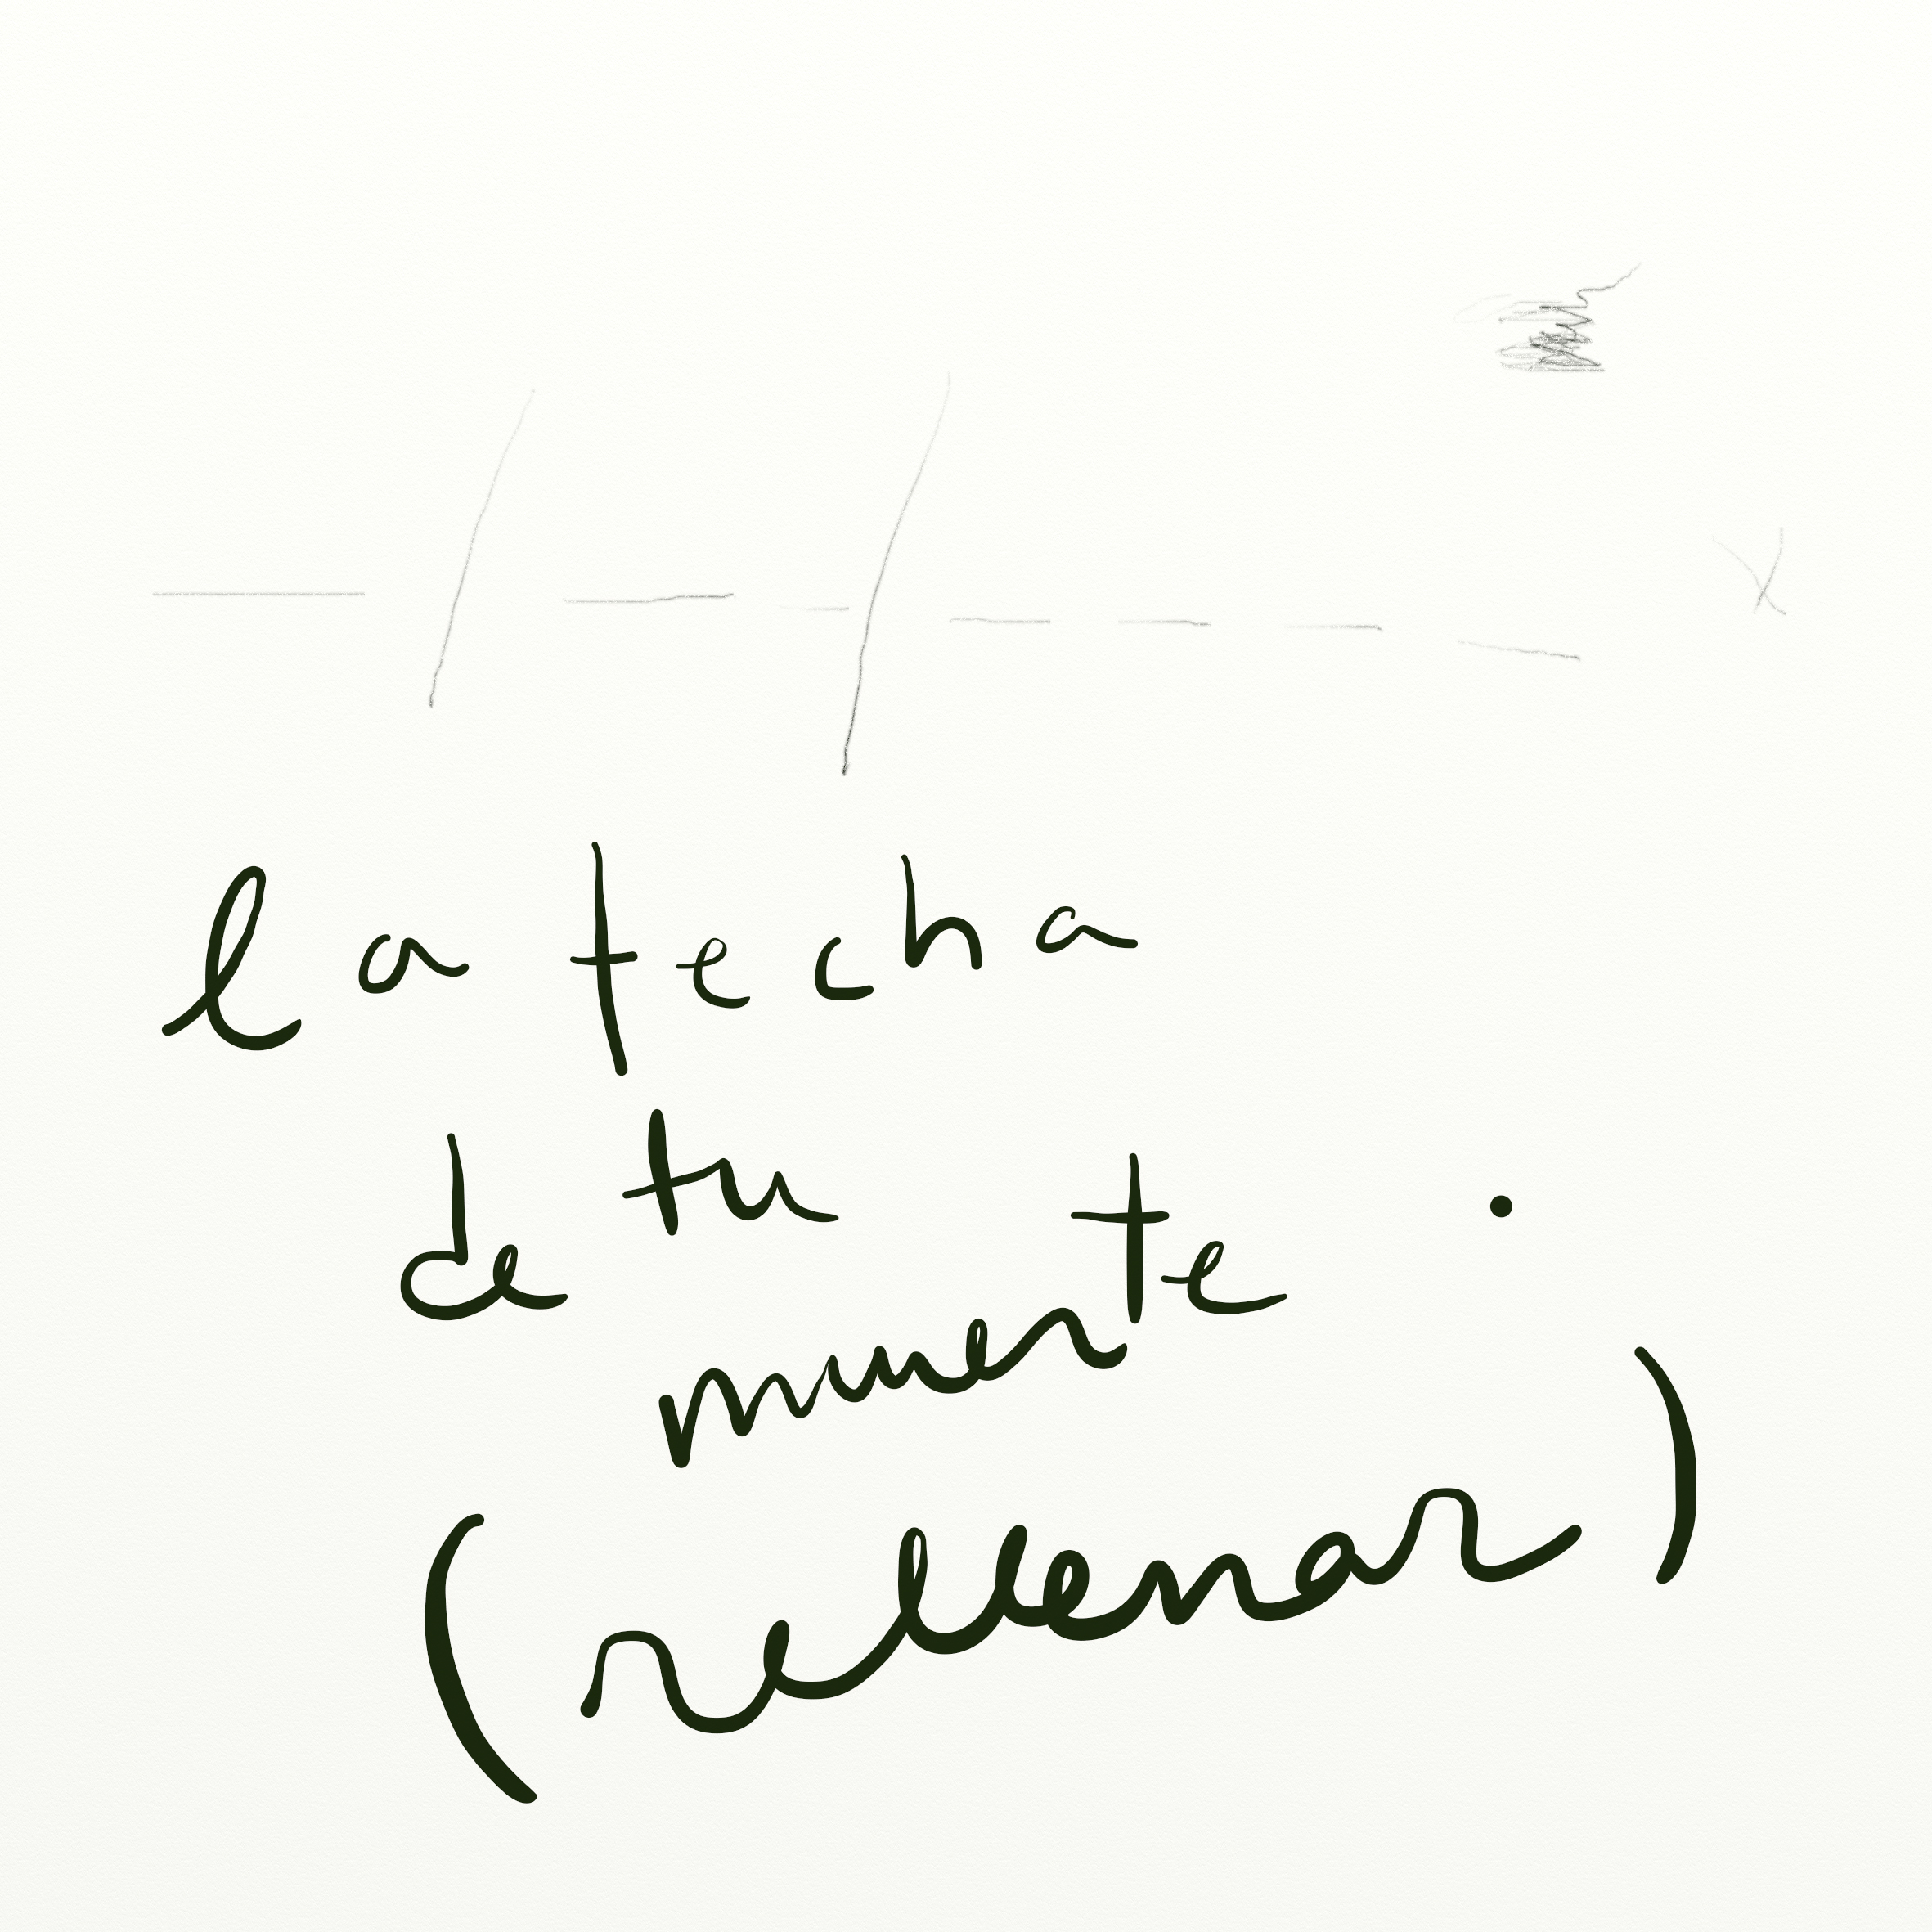 _ / _ _ / _ _ _ _
la fecha
de tu
muerte .
(rellenar)